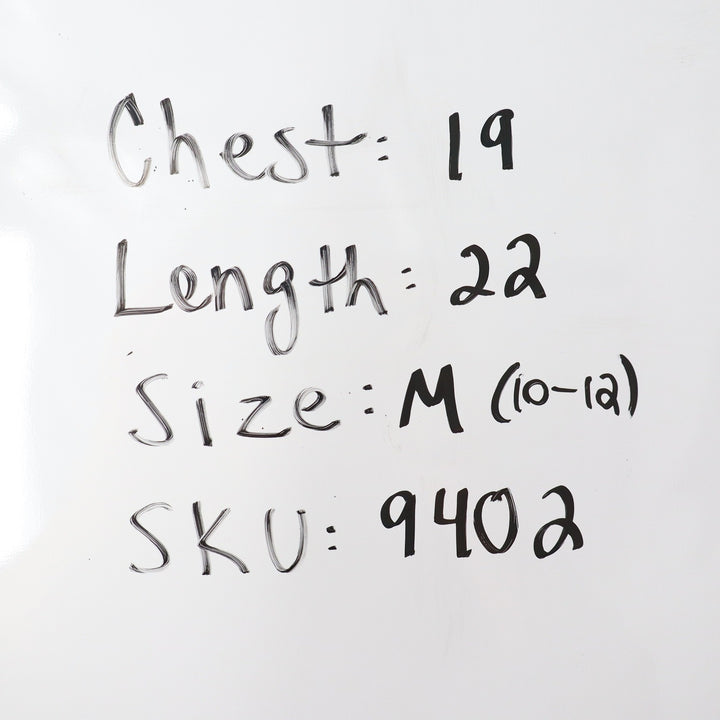 Chest: 19
Length: 22
Size: M (10-12)
SKU: 9402